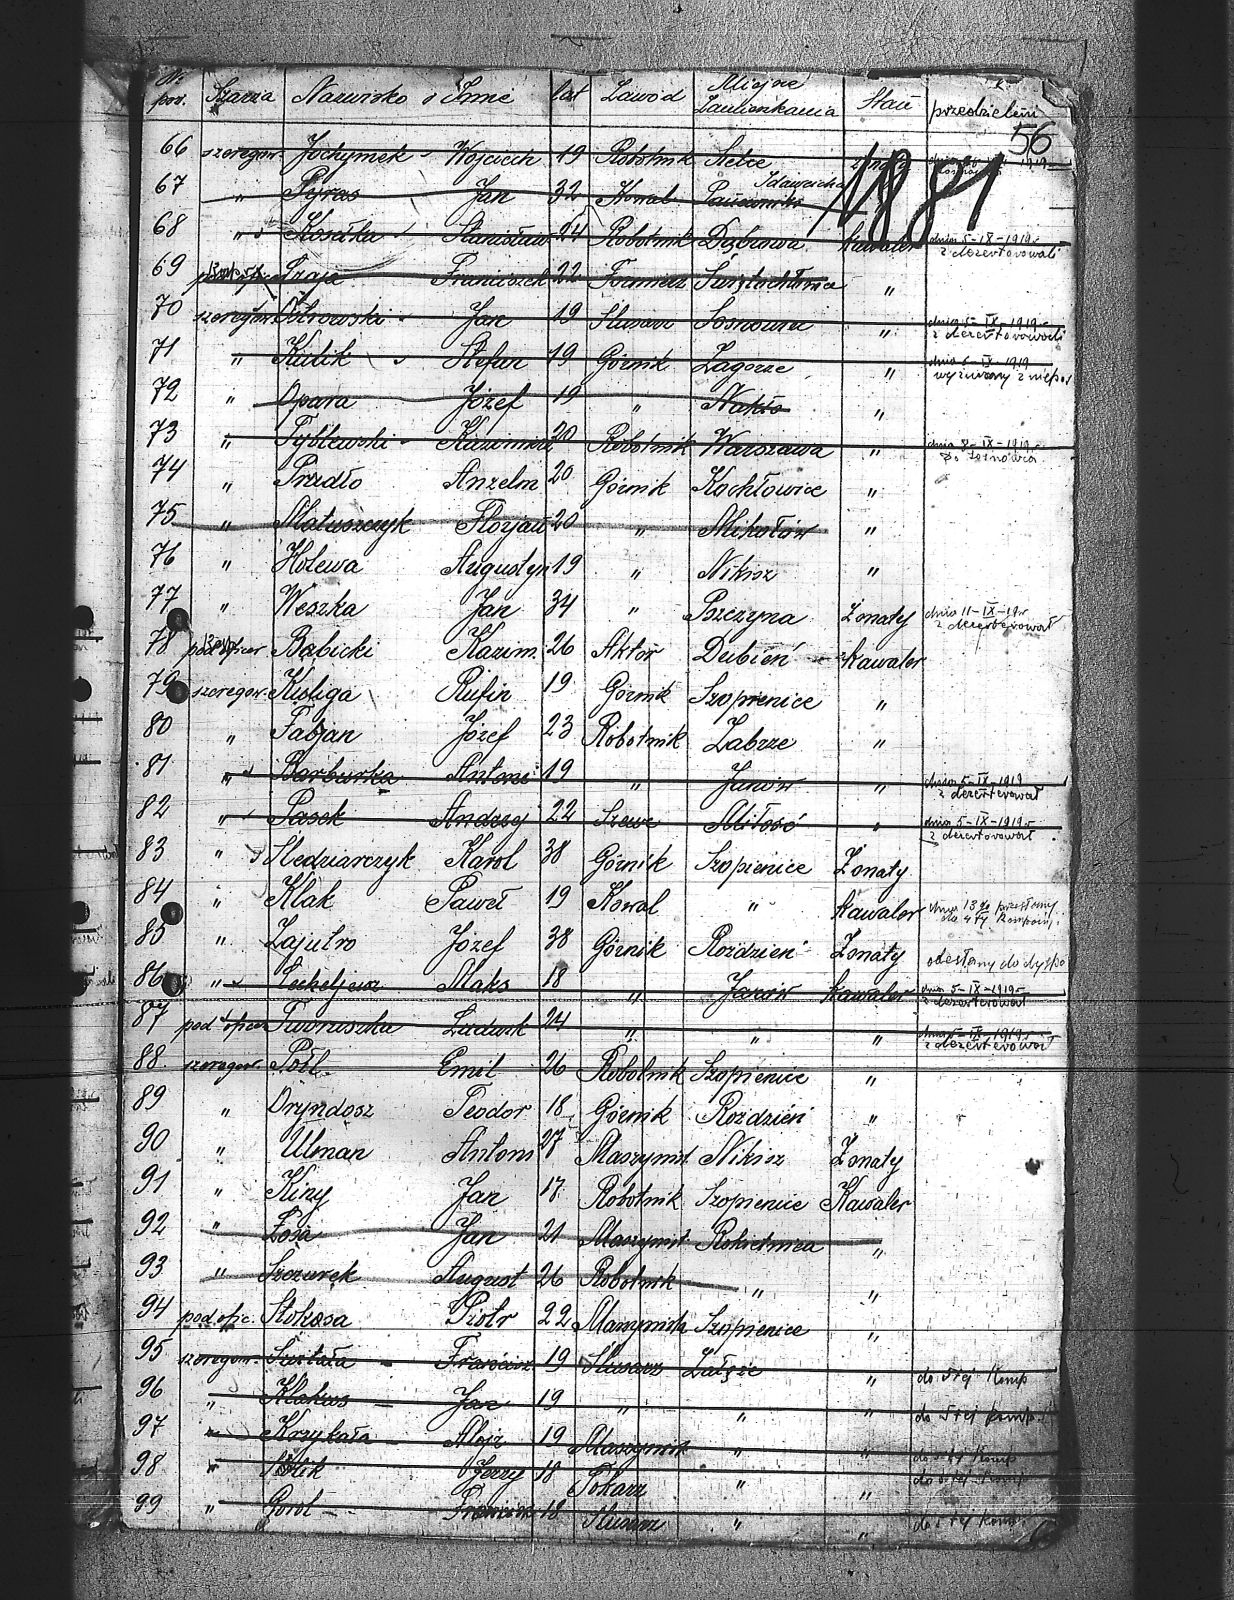 Nr. poz. Szarża Nazwisko i Imie lat Zawód Miejsce Zamieszkania Stan przedzieleni
56
1881
66 szeregow. Jochymek Wojciech 19 Robotnik
67 " Pyras Jan 32 Kowal
68 " Kosałka Stanisław 24 Robotnik Dąbrowa kawaler dnia 5-IX-1919 zdezertorowali
69 Szaja Franciszek 22 Formierz Świętochłowice "
70 szeregow. Ostrowski Jan 19 Slusarz Sosnowice " dnia 5-IX-1919 zdezertorowali
71 " Kulik Stefan 19 Górnik Zagorze " dnia 5-IX-1919
72 " Opara Józef 19 " Nakło "
73 " Tyblewski Kazimierz 20 Robotnik Warszawa " dnia 8-IX-1919
74 " Pradło Anzelm 20 Górnik Kochłowice "
75 " Matuszczyk Florjan 20 " Mikołów "
76 " Holewa Augustyn 19 " Nikisz "
77 " Weszka Jan 34 " Pszczyna Żonaty dnia 11-IX-19 zdezerterował
78 podoficer Babicki Kazim. 26 Aktor Dubień kawaler
79 szeregow. Kuliga Rufin 19 Górnik Szopienice "
80 " Fabjan Józef 23 Robotnik Zabrze "
81 " Barburka Antoni 19 " Janów " dnia 5-IX-1919 zdezerterował
82 " Pasek Andrzej 22 Szewc Miłość " dnia 5-IX-1919 zdezertorował
83 " Sledziarczyk Karol 38 Górnik Szopienice Żonaty
84 " Klak Paweł 19 Kowal " kawaler
85 " Zajutro Józef 38 Górnik Rozdzień Żonaty odesłany do dyspo
86 " Maks 18 " Janów kawaler dnia 5-IX-1919 zdezerterował
87 pod oficer Tworuszka Ludwik 24 " " " dnia 5-IX-1919 zdezerterował
88 szeregow. Post Emil 26 Robotnik Szopienice "
89 " Dryndosz Teodor 18 Górnik Rozdzień "
90 " Ulman Antoni 27 Maszynist. Nikisz Żonaty
91 " Kiny Jan 17 Robotnik Szopienice Kawaler
92 " Łosa Jan 21 Maszynist Rokietnica "
93 " Szczurek August 26 Robotnik " "
94 pod ofic. Stokosa Piotr 22 Maszynista Szopienice "
95 szeregow. Francisz. 19 Slusarz Załęże " do 5tej Komp
96 " Klakus Jan 19 " " " do 5tej komp.
97 " Krzykała Alojz 19 Maszynik " " Komp
98 " Jerzy 18 Tokarz " " Komp
99 " Gorol 18 Slusarz " " do 5tej Komp.